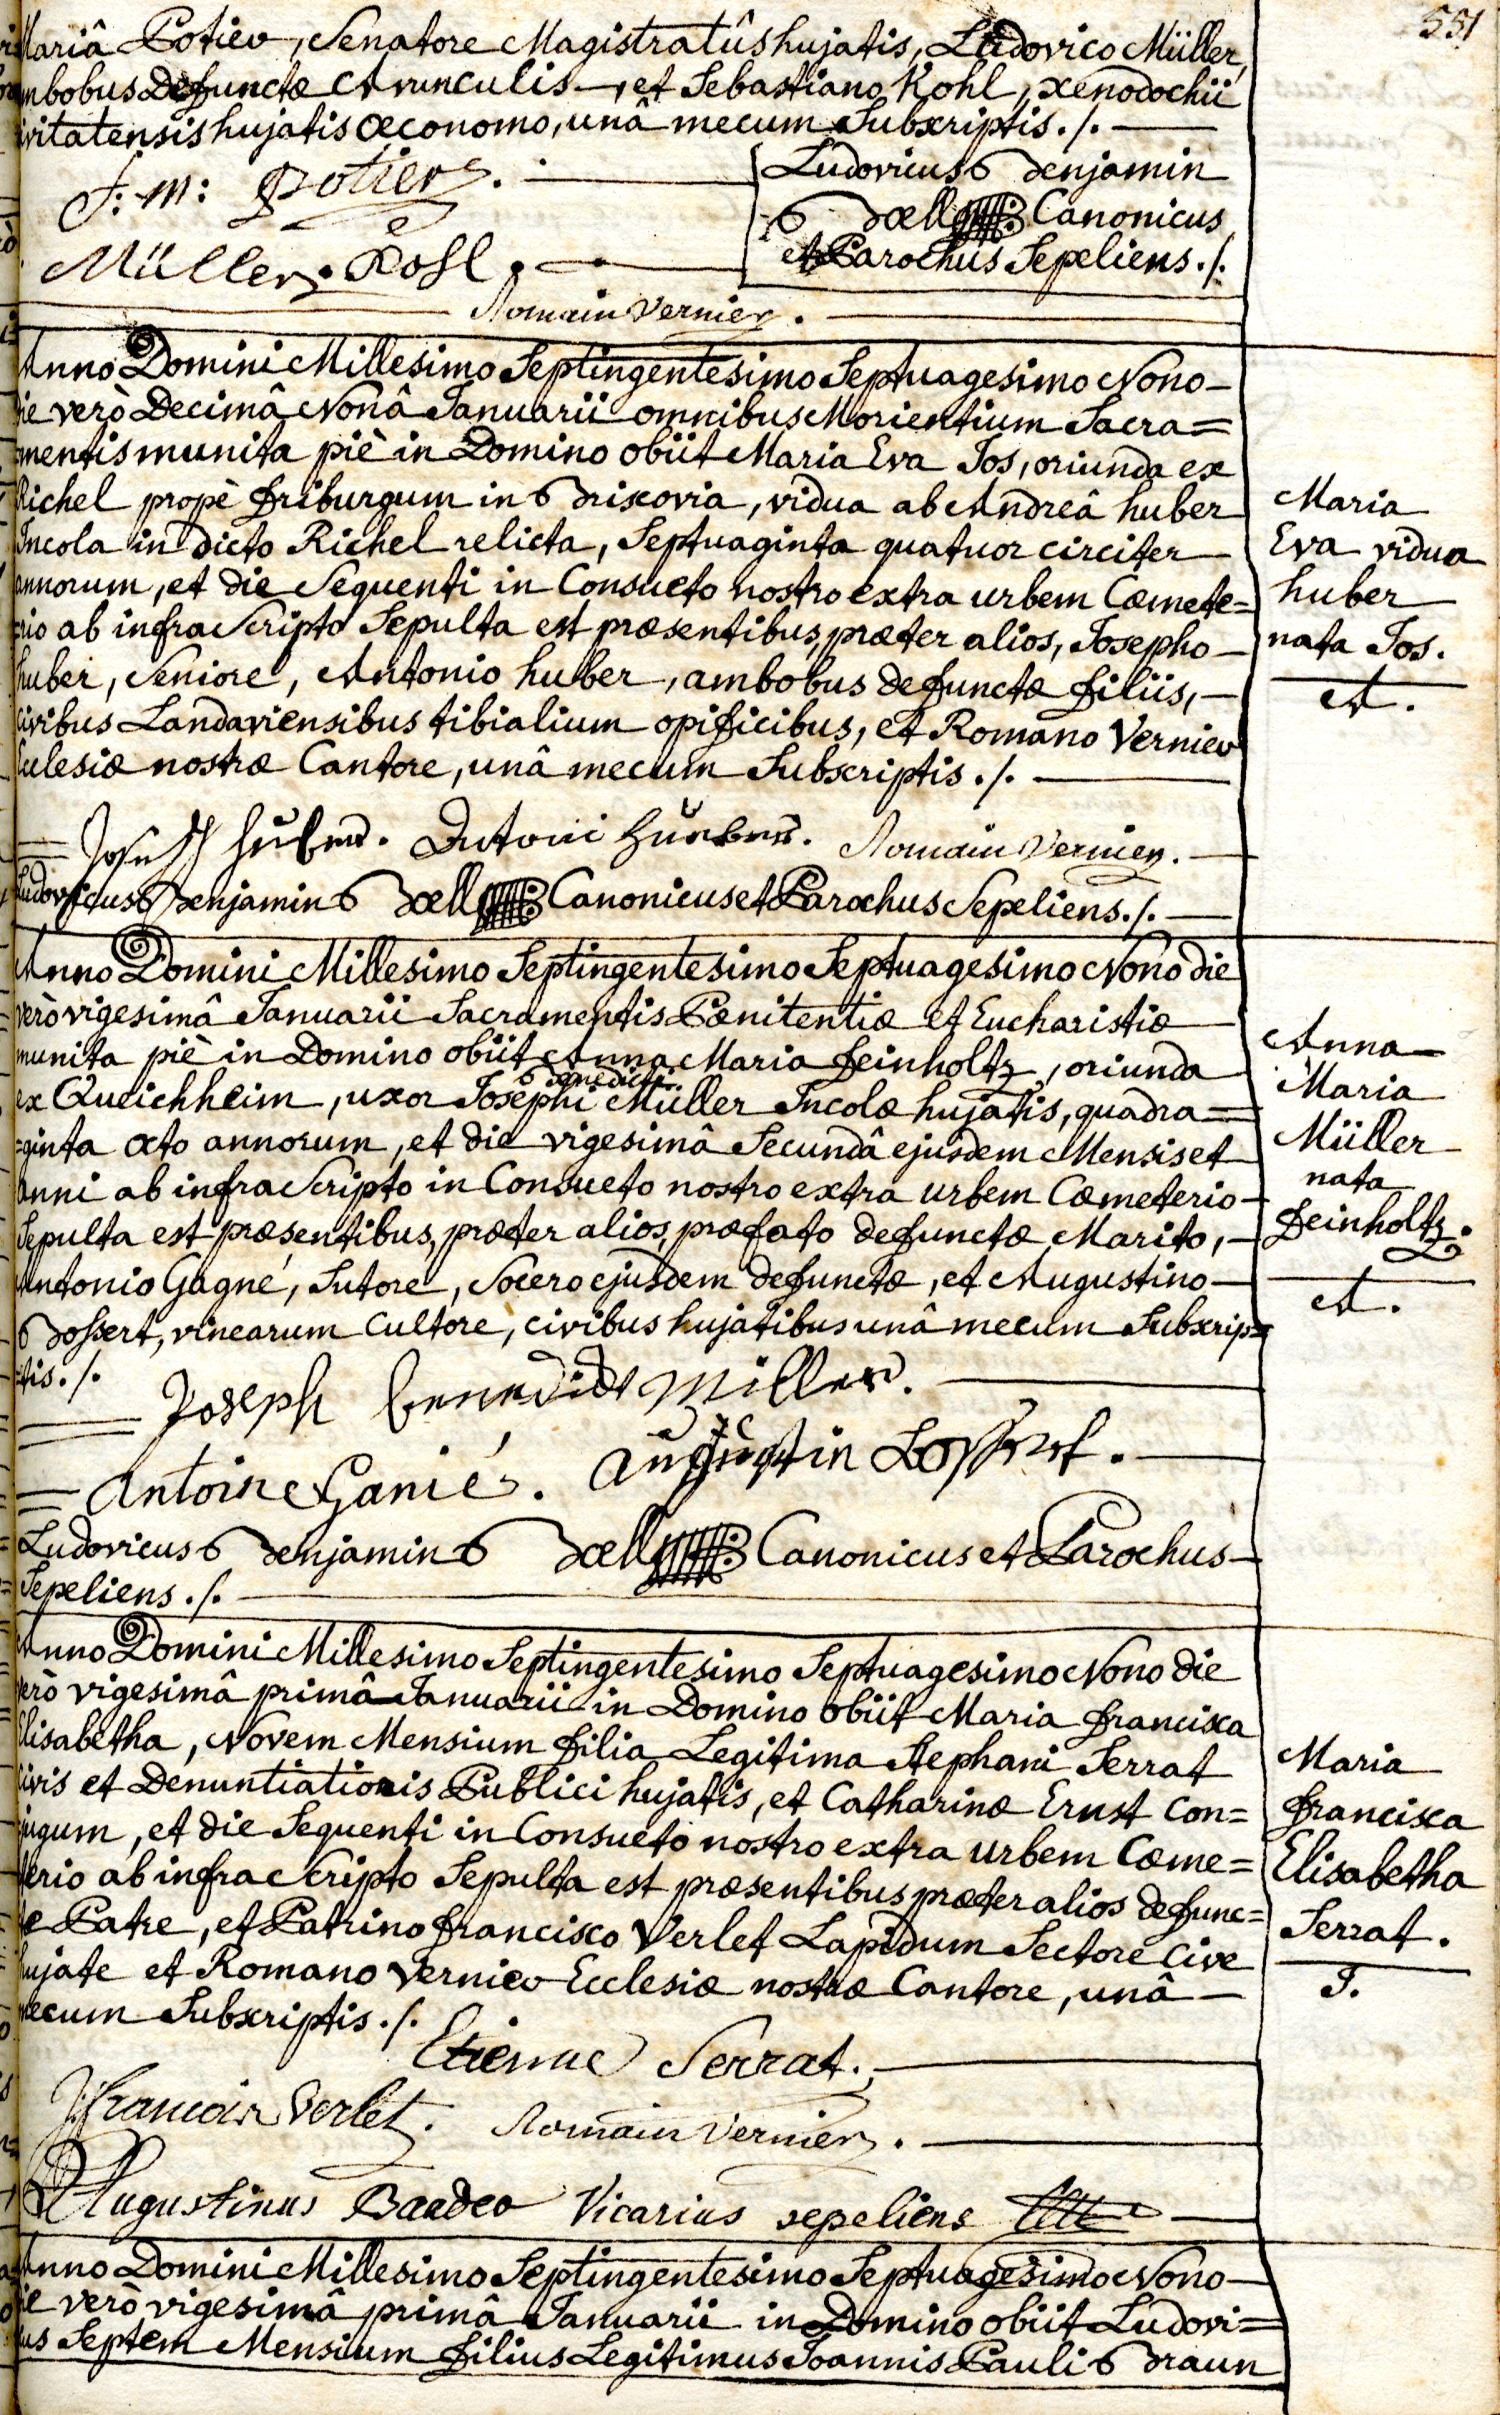 551
Mariâ Potier, Senatore Magistratûs hujatis, Ludovico Müller,
ambobus Defunctæ Avunculis, et Sebastiano Kohl, xenodochii
civitatensis hujatis œconomo, unâ mecum Subscriptis ./.
F: M: Potier.
Ludovicus Benjamin
Boell Canonicus
et Parochus Sepeliens ./.
Müller. Kohl.
Romain Vernier.
Anno Domini Millesimo Septingentesimo Septuagesimo Nono
die verò Decimâ Nonâ Januarii omnibus Morientium Sacra=
=mentis munita piè in Domino obiit Maria Eva Jos, oriunda ex
Richel propè friburgum in Briscovia, vidua ab Andreâ huber
Incola in dicto Richel relicta, Septuaginta quatuor circiter
annorum, et die Sequenti in Consueto nostro extra urbem Cœmete=
=rio ab infra Scripto Sepulta est præsentibus, præter alios, Josepho
huber, Seniore, Antonio huber, ambobus defunctæ filiis,
civibus Landaviensibus tibialium opificibus, et Romano Vernier
Eclesiæ nostræ Cantore, unâ mecum Subscriptis ./.
Maria
Eva vidua
huber
nata Jos.
A.
Joseph huber. Antoni huber. Romain Vernier.
Ludovicus Benjamin Boell Canonicus et Parochus Sepeliens ./.
Anno Domini Millesimo Septingentesimo Septuagesimo Nono die
verò vigesimâ Januarii Sacramentis Pœnitentiæ et Eucharistiæ
munita piè in Domino obiit Anna Maria feinholtz, oriunda
Benedicti
ex Queichheim, uxor Josephi Müller Incolæ hujatis, quadra=
=ginta octo annorum, et die vigesimâ Secundâ ejusdem Mensis et
Anni ab infra Scripto in Consueto nostro extra urbem Cœmeterio
Sepulta est præsentibus, præter alios, præfato defunctæ Marito,
Antonio Gagné, Sutore, Socero ejusdem defunctæ, et Augustino
Bossert, vinearum Cultore, civibus hujatibus unâ mecum Subscrip=
=tis ./.
Anna
Maria
Müller
nata
feinholtz.
A.
Joseph benedict Miller.
Antoine Ganié. augustin Bossert.
Ludovicus Benjamin Boell Canonicus et Parochus
Sepeliens ./.
Anno Domini Millesimo Septingentesimo Septuagesimo Nono die
verò vigesimâ primâ Januarii in Domino obiit Maria francisca
Elisabetha, Novem Mensium filia Legitima Stephani Serrat
civis et Denuntiationis Publici hujatis, et Catharinæ Ernst Con=
jugum, et die Sequenti in Consueto nostro extra urbem Cœme=
terio ab infra Scripto Sepulta est præsentibus præter alios defunc=
tæ Patre, et Patrino francisco Verlet Lapidum Sectore Cive
hujate et Romano Vernier Ecclesiæ nostræ Cantore, unâ
mecum Subscriptis ./.
Maria
francisca
Elisabetha
Serrat.
J.
Etienne Serrat.
francois Verlet. Romain Vernier.
Augustinus Baader Vicarius sepeliens
Anno Domini Millesimo Septingentesimo Septuagesimo Nono
die verò vigesimâ primâ Januarii in Domino obiit Ludovi=
cus Septem Mensium filius Legitimus Joannis Pauli Braun